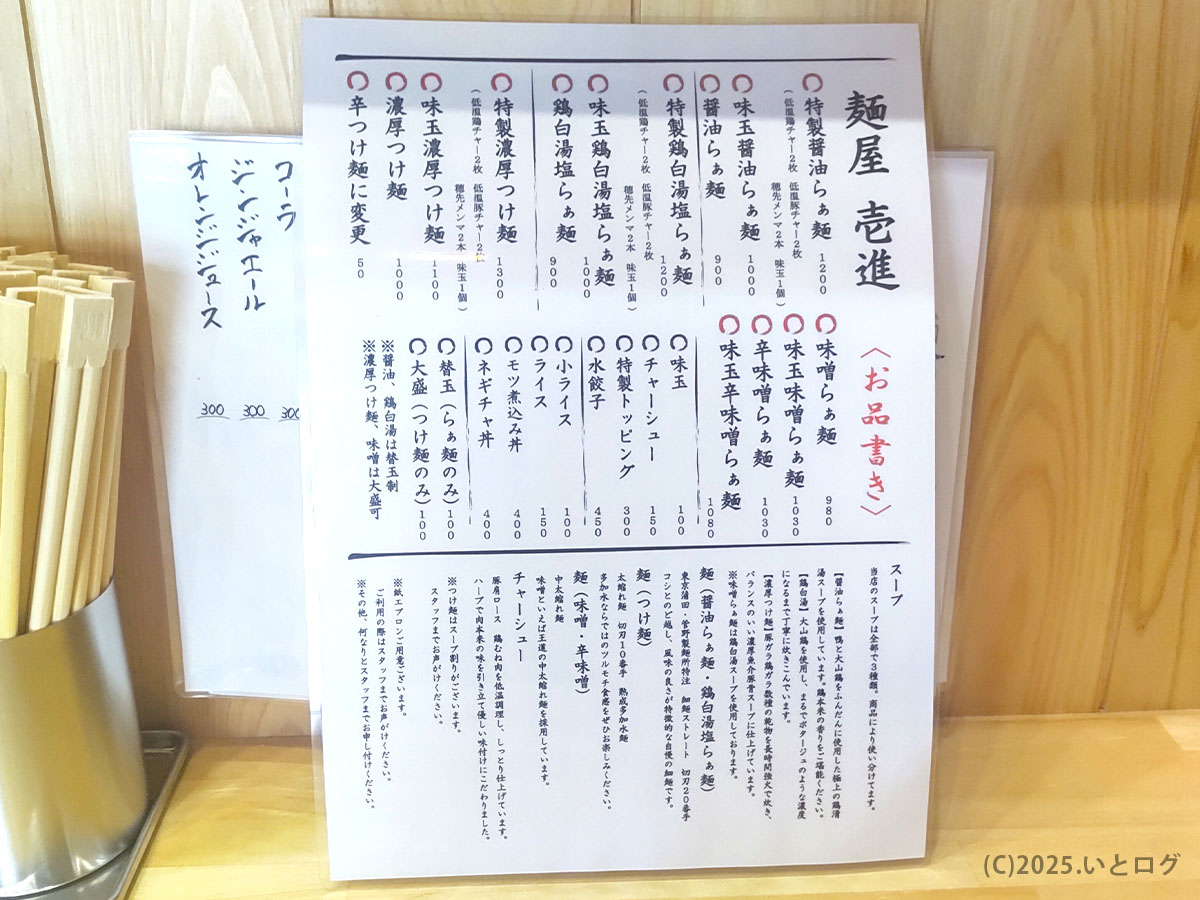 麺屋 壱進
〈お品書き〉
特製醤油らぁ麺 1200
（低温鶏チャー2枚 低温豚チャー2枚
穂先メンマ2本 味玉1個）
味玉醤油らぁ麺 1000
醤油らぁ麺 900
特製鶏白湯塩らぁ麺 1200
（低温鶏チャー2枚 低温豚チャー2枚
穂先メンマ2本 味玉1個）
味玉鶏白湯塩らぁ麺 1000
鶏白湯塩らぁ麺 900
特製濃厚つけ麺 1300
（低温鶏チャー2枚 低温豚チャー2枚
穂先メンマ2本 味玉1個）
味玉濃厚つけ麺 1100
濃厚つけ麺 1000
辛つけ麺に変更 50
味噌らぁ麺 980
味玉味噌らぁ麺 1030
辛味噌らぁ麺 1030
味玉辛味噌らぁ麺 1080
味玉 100
チャーシュー 150
特製トッピング 300
水餃子 450
小ライス 100
ライス 150
モツ煮込み丼 400
ネギチャ丼 400
替玉（らぁ麺のみ） 100
大盛（つけ麺のみ） 100
※醤油、鶏白湯は替玉制
※濃厚つけ麺、味噌は大盛可
スープ
当店のスープは全部で3種類。商品により使い分けてます。
【醤油らぁ麺】鴨と大山鶏をふんだんに使用した極上の鶏清
湯スープを使用しています。鶏本来の香りをご堪能ください。
【鶏白湯】大山鶏を使用し、まるでポタージュのような濃度
になるまで丁寧に炊きこんでいます。
【濃厚つけ麺】豚ガラ鶏ガラ数種の乾物を長時間強火で炊き、
バランスのいい濃厚魚介豚骨スープに仕上げています。
※味噌らぁ麺は鶏白湯スープを使用しております。
麺（醤油らぁ麺・鶏白湯塩らぁ麺）
東京蒲田・菅野製麺所特注 細麺ストレート 切刃20番手
コシとのど越し、風味の良さが特徴的な自慢の細麺です。
麺（つけ麺）
太縮れ麺 切刃10番手 熟成多加水麺
多加水ならではのツルモチ食感をぜひお楽しみください。
麺（味噌・辛味噌）
中太縮れ麺
味噌といえば王道の中太縮れ麺を採用しています。
チャーシュー
豚肩ロース 鶏むね肉を低温調理し、しっとり仕上げています。
ハーブで肉本来の味を引き立て優しい味付けにこだわりました。
※つけ麺はスープ割りがございます。
スタッフまでお声がけください。
※紙エプロンご用意ございます。
ご利用の際はスタッフまでお声がけください。
※その他、何なりとスタッフまでお申し付けください。
コーラ 300
ジンジャエール 300
オレンジジュース 300
(C)2025.いとログ